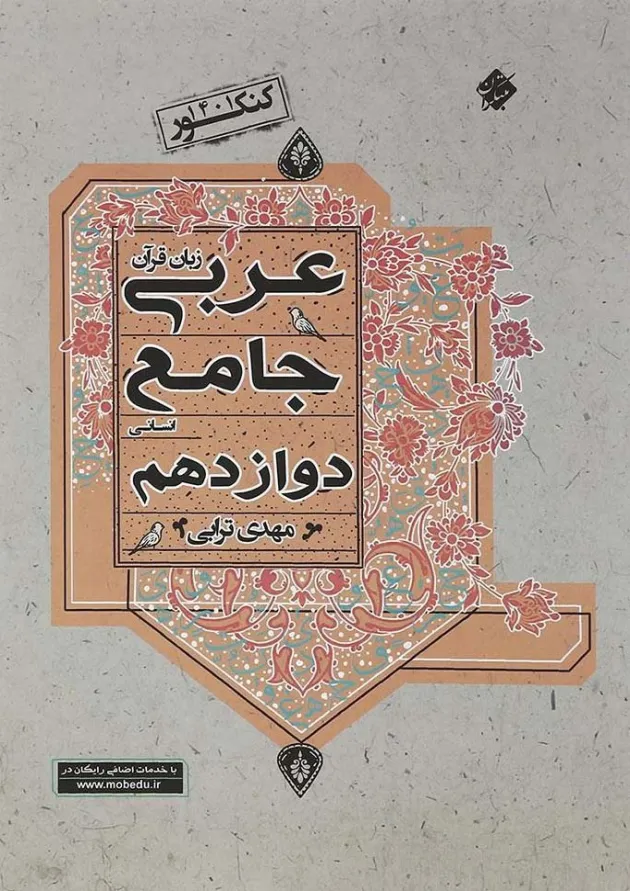 کنکور
۱۴۰۱
مبتکران
زبان قرآن
عربی
جامع
انسانی
دوازدهم
مهدی ترابی
با خدمات اضافی رایگان در
www.mobedu.ir